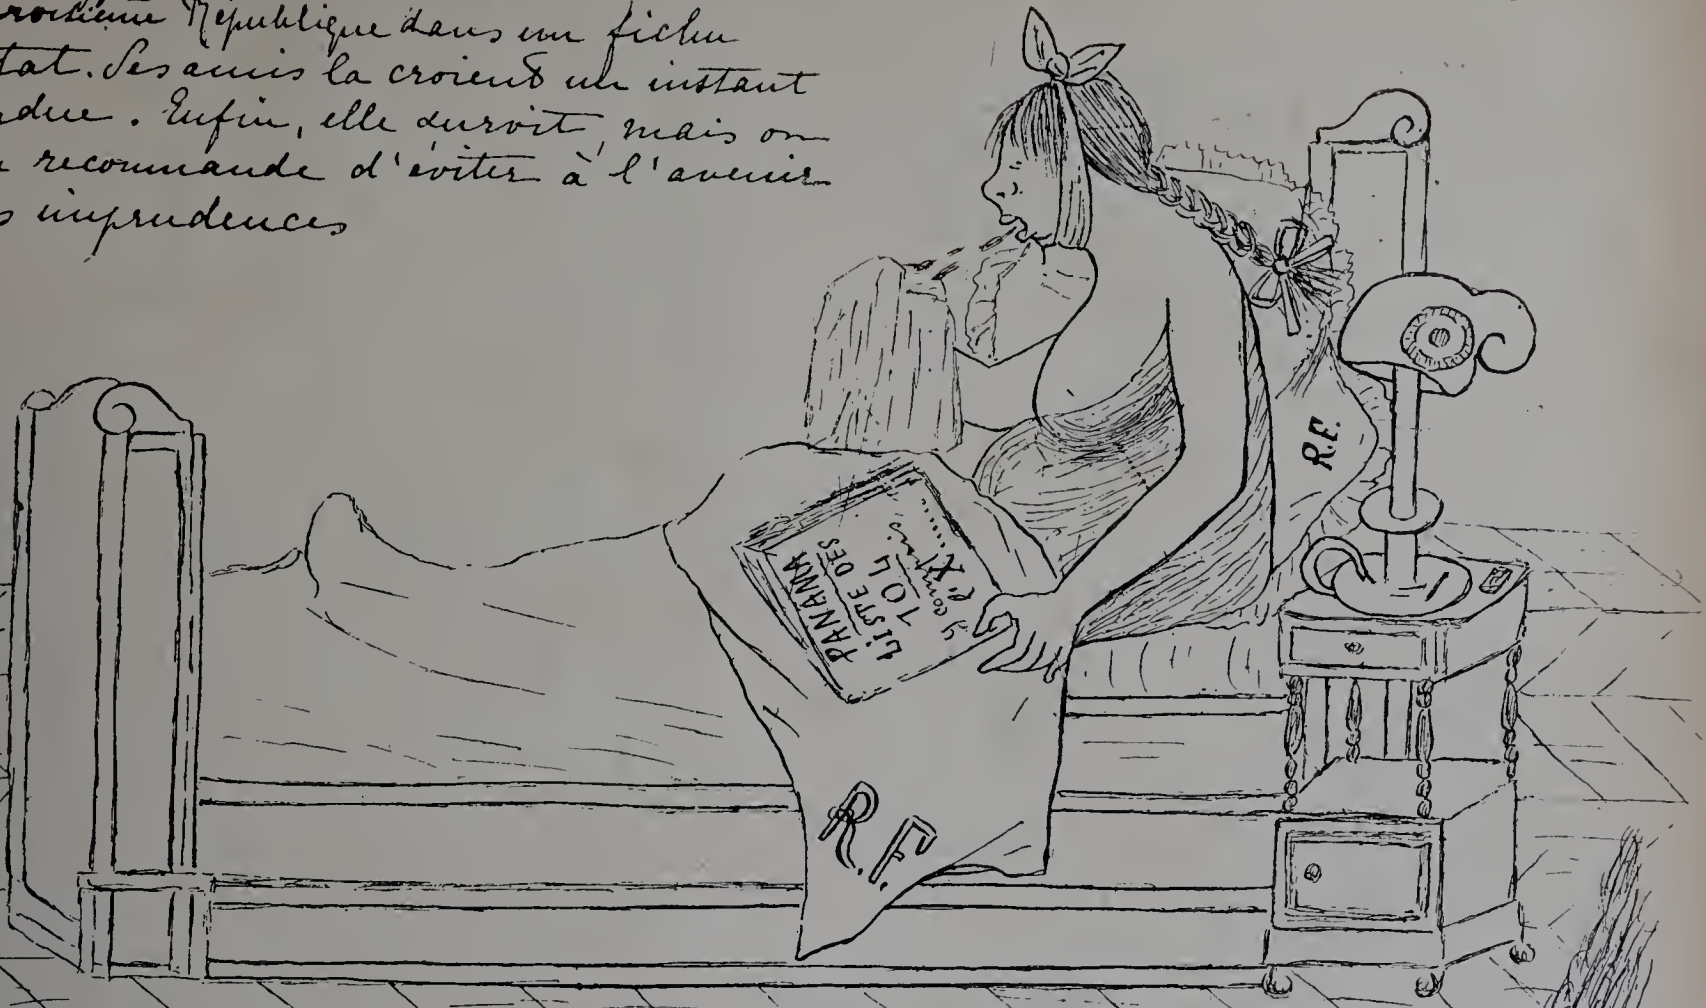 roisième République dans un fichu
tat. Ses amis la croient un instant
rdue. Enfin, elle survit, mais on
recommande d'éviter à l'avenir
s imprudences
PANAMA
LISTE DES
104
y compris
l'X!.......
R.F.
R.F.